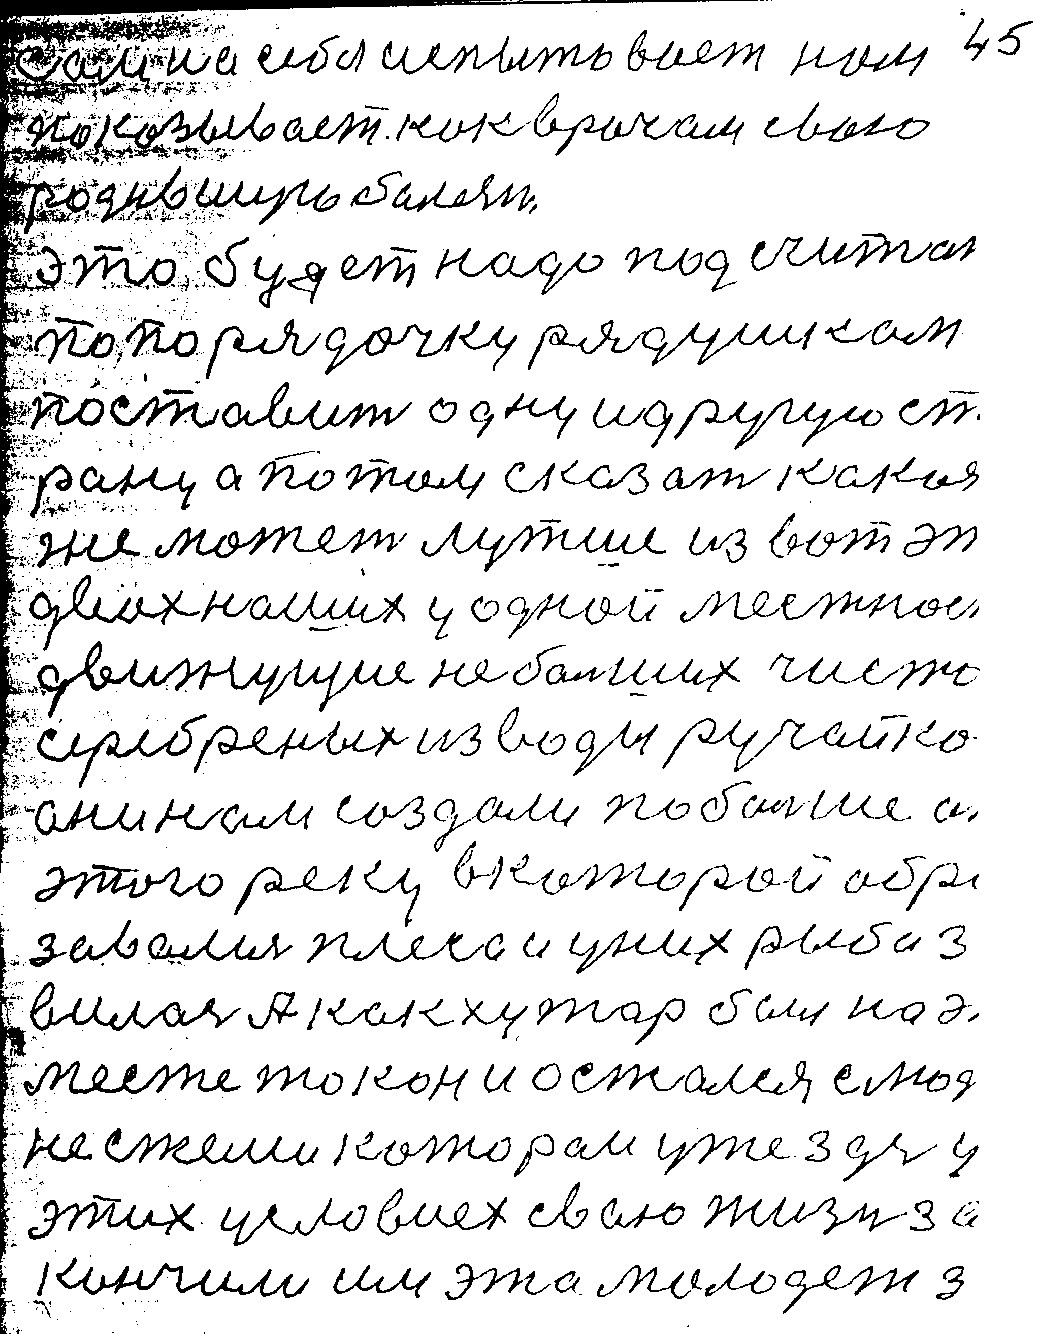 45
сам на себя испытовает нам
показывает как врачам свою
роднвшую балезн,
это будет надо под считат
по порядочку рядушкам
поставит одну и другую ст.
рану а потом сказат какоя
же может лутше из вот эт
двиох наших у одной местнос
движущие не балших чисто
серебреных из воды ручайко
ани нам создали побалше а
этого реку в которой обра
завался плеса и у них рыба з
вилая А как хутар был на э
месте так он и остался с мод
не стеми котораи уже здя у
этих условиех сваю жизн за
кончили им эта молодет з